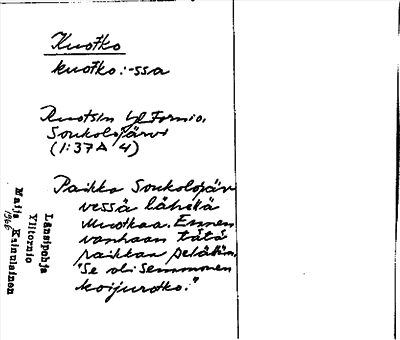 Kuotko
kuotko:-ssa
Ruotsin Yl.Tornio.
Soukolojärvi
(1:37A 4)
Paikka Soukolojär
vessä lähellä
Muotkaa. Ennen
vanhaan tätä
paikkaa pelättiin.
"Se oli semmonen
koijurotko."
Länsipohja
Ylitornio
Maija Kainulainen
1966